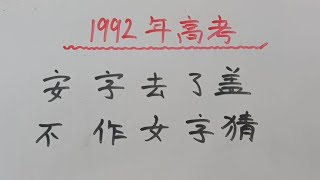 1992年高考
安字去了盖
不作女字猜